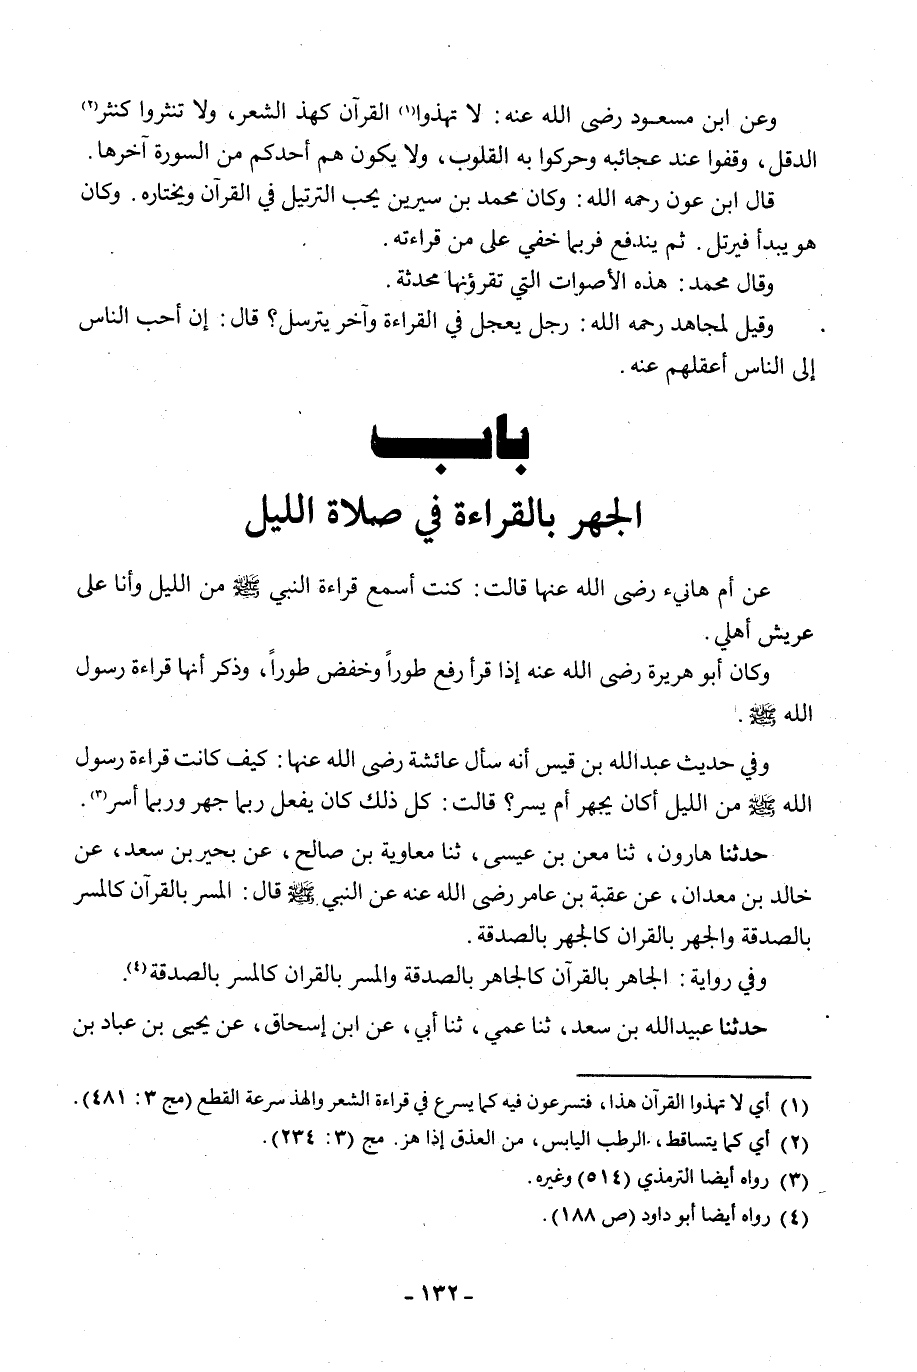 وعن ابن مسعود رضى الله عنه: لا تهذوا(١) القرآن كهذ الشعر، ولا تنثروا كنثر(٢)
الدقل، وقفوا عند عجائبه وحركوا به القلوب، ولا يكون هم أحدكم من السورة آخرها.
قال ابن عون رحمه الله: وكان محمد بن سيرين يحب الترتيل في القرآن ويختاره. وكان
هو يبدأ فيرتل. ثم يندفع فربما خفي على من قراءته.
وقال محمد: هذه الأصوات التي تقرؤنها محدثة.
وقيل لمجاهد رحمه الله: رجل يعجل في القراءة وآخر يترسل؟ قال: إن أحب الناس
إلى الناس أعقلهم عنه.
باب
الجهر بالقراءة في صلاة الليل
عن أم هانيء رضى الله عنها قالت: كنت أسمع قراءة النبي ﷺ من الليل وأنا على
عريش أهلي.
وكان أبو هريرة رضى الله عنه إذا قرأ رفع طوراً وخفض طوراً، وذكر أنها قراءة رسول
الله ﷺ.
وفي حديث عبدالله بن قيس أنه سأل عائشة رضى الله عنها: كيف كانت قراءة رسول
الله ﷺ من الليل أكان يجهر أم يسر؟ قالت: كل ذلك كان يفعل ربما جهر وربما أسر(٣).
حدثنا هارون، ثنا معن بن عيسى، ثنا معاوية بن صالح، عن بحير بن سعد، عن
خالد بن معدان، عن عقبة بن عامر رضى الله عنه عن النبي ﷺ قال: المسر بالقرآن كالمسر
بالصدقة والجهر بالقران كالجهر بالصدقة.
وفي رواية: الجاهر بالقرآن كالجاهر بالصدقة والمسر بالقران كالمسر بالصدقة(٤).
حدثنا عبيدالله بن سعد، ثنا عمي، ثنا أبي، عن ابن إسحاق، عن يحيى بن عباد بن
(١) أي لا تهذوا القرآن هذا، فتسرعون فيه كما يسرع في قراءة الشعر والهذ سرعة القطع (مج ٣: ٤٨١).
(٢) أي كما يتساقط، الرطب اليابس، من العذق إذا هز. مج (٣: ٢٣٤).
(٣) رواه أيضا الترمذي (٥١٤) وغيره.
(٤) رواه أيضا أبو داود (ص ١٨٨).
- ١٣٢ -